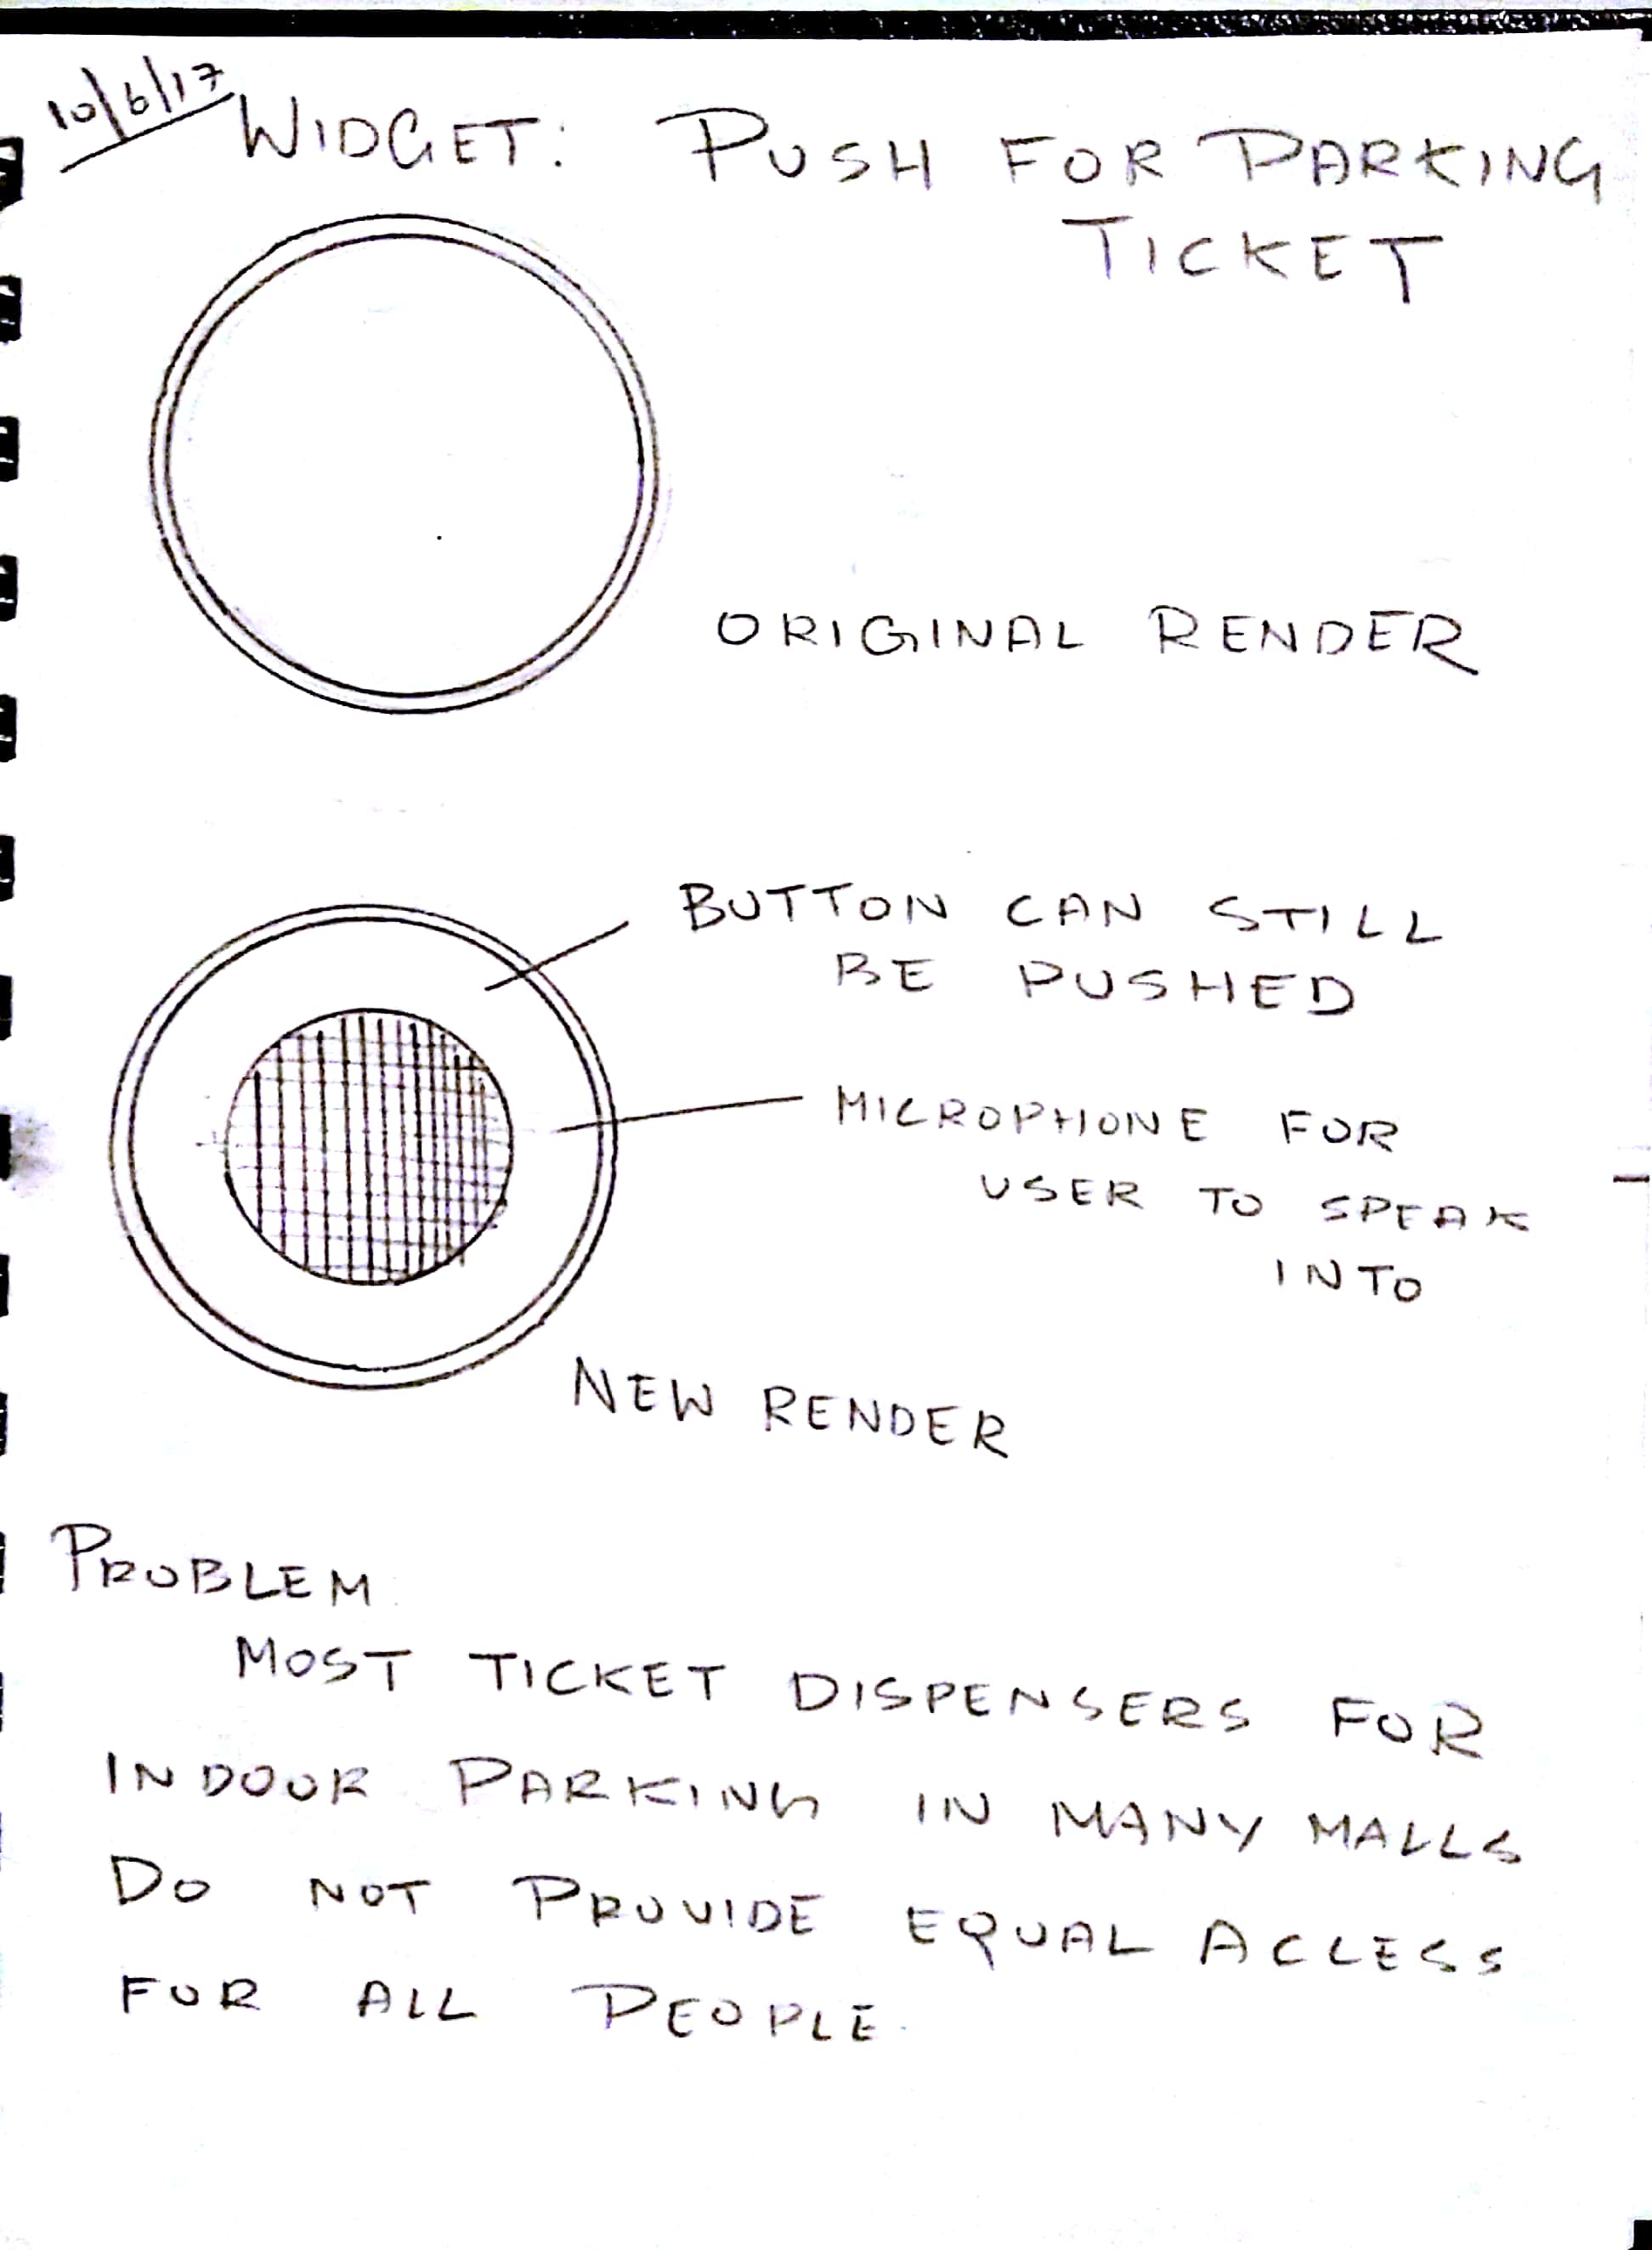 10/6/17
WIDGET: PUSH FOR PARKING
TICKET
ORIGINAL RENDER
BUTTON CAN STILL
BE PUSHED
MICROPHONE FOR
USER TO SPEAK
INTO
NEW RENDER
PROBLEM
MOST TICKET DISPENSERS FOR
INDOOR PARKING IN MANY MALLS
DO NOT PROVIDE EQUAL ACCESS
FOR ALL PEOPLE.